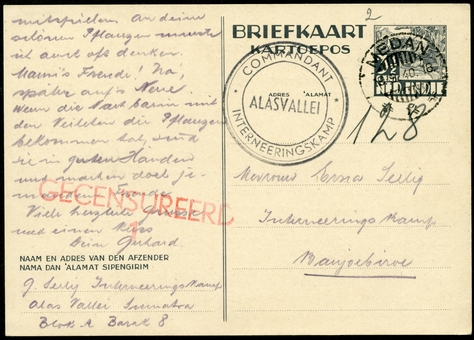 mitspielen. An deine
schönen Pflanzen musste
ich auch oft denken.
Mami's Freude! Na,
später auf's Neue.
Wenn die
den Veilchen die Pflanzen
bekommen hat, sind
sie in guten Händen
und machen doch je-
mandem Freude.
Viele herzliche Grüsse
und einen Kuss
Dein Gerhard
GECENSUREERD
1
NAAM EN ADRES VAN DEN AFZENDER
NAMA DAN 'ALAMAT SIPENGIRIM
G. Seelig Interneeringskamp
Alas Vallei Sumatra
Blok A Barak 8
2
BRIEFKAART
KARTOEPOS
COMMANDANT
ADRES 'ALAMAT
ALASVALLEI
INTERNEERINGSKAMP
MEDAN
40
NED. INDIE
128
Mevrouw Erna Seelig
Interneerings Kamp
Banjoebiroe